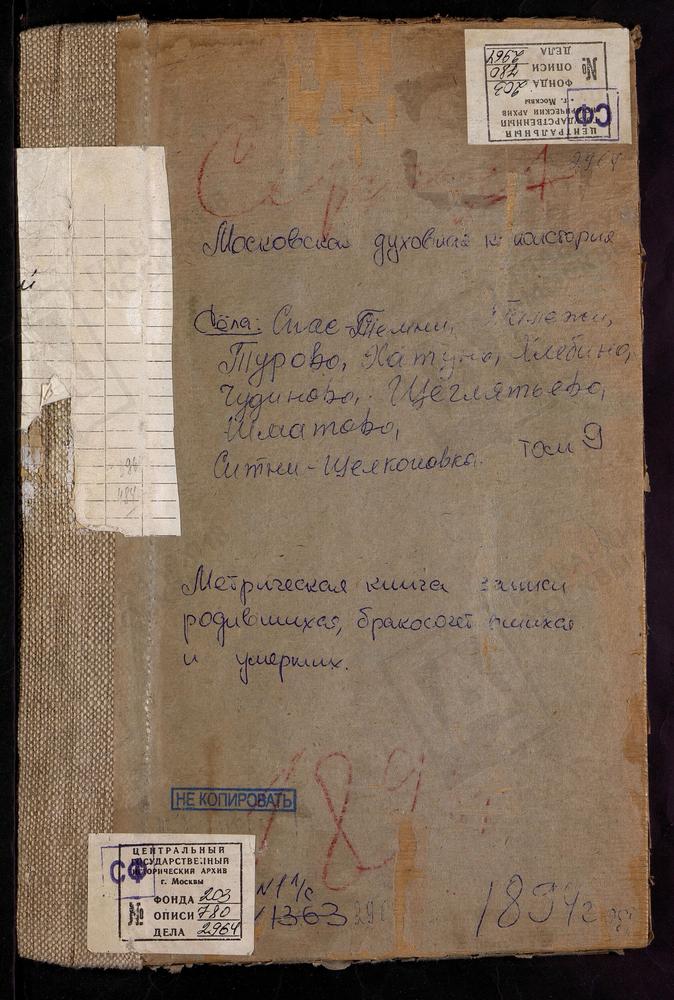 ЦЕНТРАЛЬНЫЙ
ГОСУДАРСТВЕННЫЙ
ИСТОРИЧЕСКИЙ АРХИВ
г. Москвы
СФ
№
ФОНДА 203
ОПИСИ 780
ДЕЛА 2964
2964
Московская духовная консистория
Сёла: Спас-Темни,
Турово, Хатунь, Хлебино,
Чудиново, Щеглятьево,
Шматово,
Ситни-Щелкановка. том 9
Метрическая книга записи
родившихся, бракосочетавшихся
и умерших.
НЕ КОПИРОВАТЬ
189
ЦЕНТРАЛЬНЫЙ
ГОСУДАРСТВЕННЫЙ
ИСТОРИЧЕСКИЙ АРХИВ
г. Москвы
СФ
№
ФОНДА 203
ОПИСИ 780
ДЕЛА 2964
1363
1894г